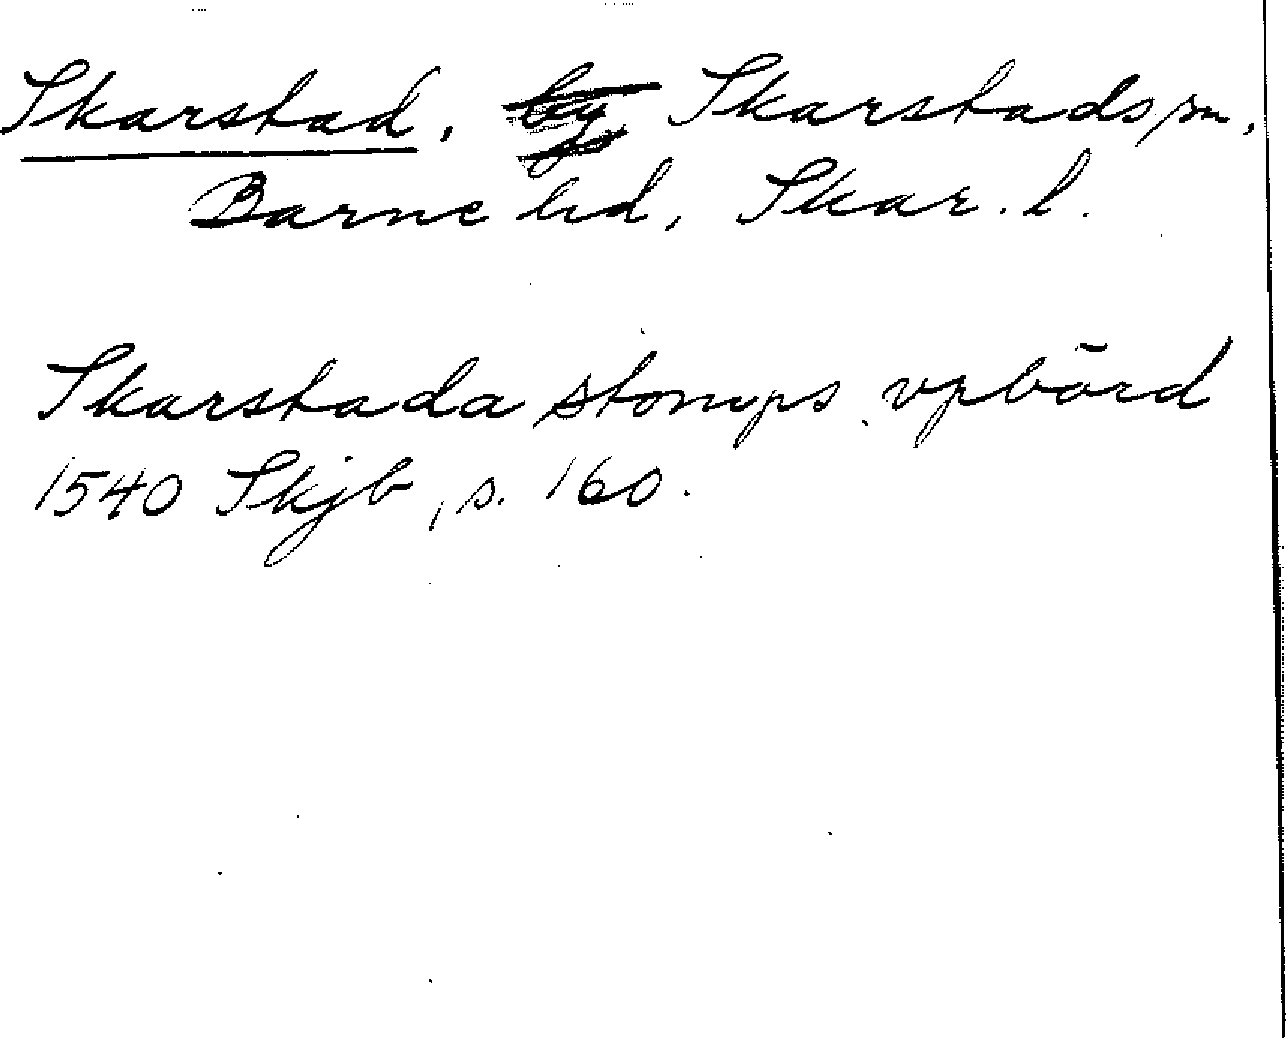 Skarstad, by Skarstads sn,
Barne hd, Skar. l.
Skarstada stomps vpbörd
1540 Skjb, s. 160.